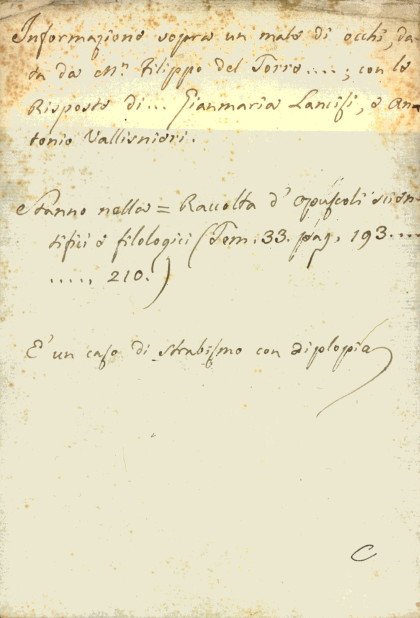 Informazione sopra un male di occhi, da-
ta da Mr. Filippo del Torre....; con le
Risposte di... Gianmaria Lancisi, e An-
tonio Vallisnieri.
Stanno nella = Raccolta d' opuscoli scien-
tifici e filologici (Tom. 33. pag. 193....
....., 210.)
E' un caso di strabismo con diplopia
C